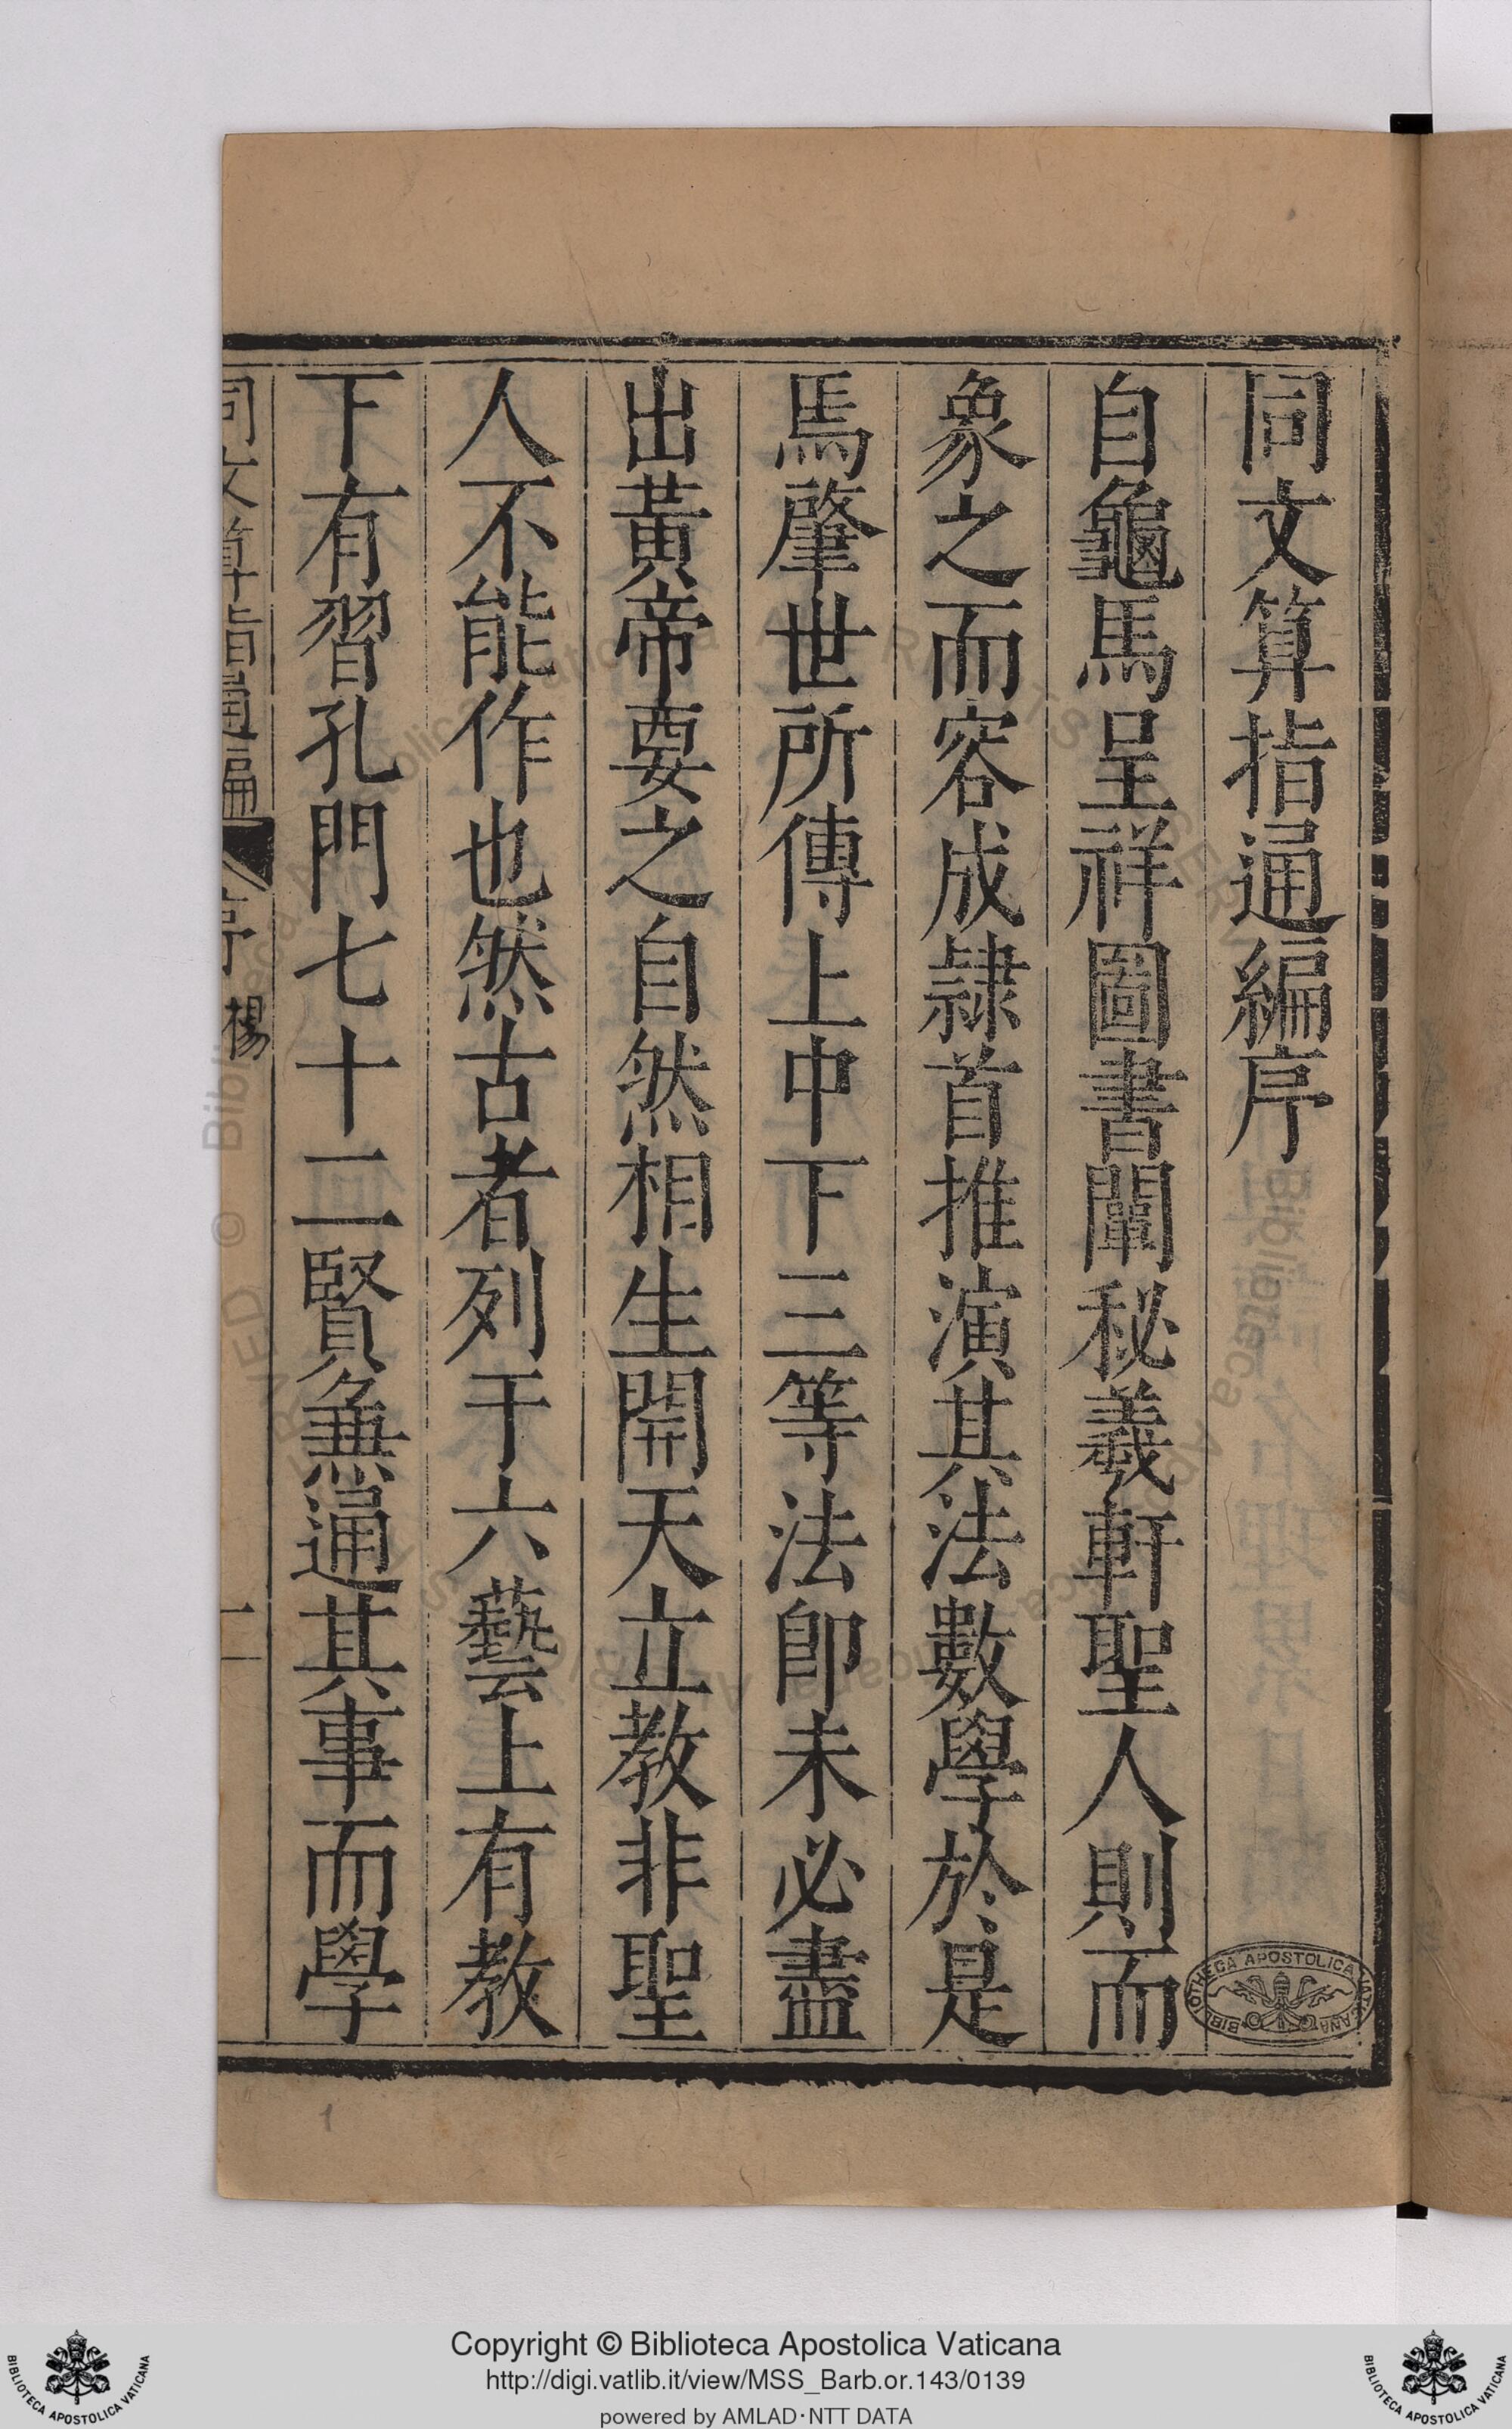 同文算指通編序
自龜馬呈祥圖書闡秘羲軒聖人則而
象之而容成隷首推演其法數學於是
焉肇世所傳上中下三等法卽未必盡
出黃帝要之自然相生開天立教非聖
人不能作也然古者列于六藝上有教
下有習孔門七十二賢兼通其事而學
同文算指通編 序 楊 一
BIBLIOTHECA APOSTOLICA VATICANA
1
Copyright © Biblioteca Apostolica Vaticana
http://digi.vatlib.it/view/MSS_Barb.or.143/0139
powered by AMLAD·NTT DATA
BIBLIOTECA APOSTOLICA VATICANA
BIBLIOTECA APOSTOLICA VATICANA